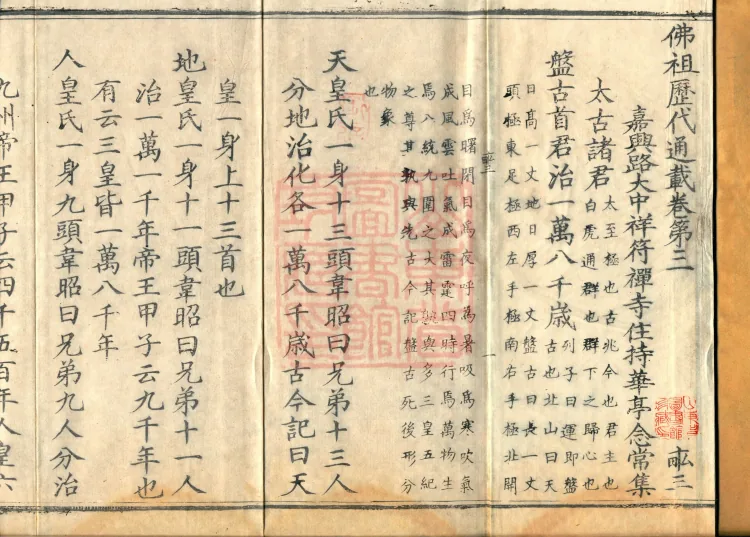 佛祖歷代通載卷第三 畆三
嘉興路大中祥符禪寺住持華亭念常集
太古諸君 太至極也古兆今也君主也
白虎通群也群下之歸心也
盤古首君治一萬八千歳 列子曰運即盤
古也北山曰天
日高一丈地日厚一丈盤古日長一丈
頭極東足極西左手極南右手極北開
目爲曙閉目爲夜呼爲暑吸爲寒吹氣
成風雲吐氣成雷霆四時行焉萬物生
焉八統九圍之大其孰與多三皇五紀
之尊其孰與先古今記盤古死後形分
物象
也
天皇氏一身十三頭韋昭曰兄弟十三人
分地治化各一萬八千歳古今記曰天
皇一身上十三首也
地皇氏一身十一頭韋昭曰兄弟十一人
治一萬一千年帝王甲子云九千年也
有云三皇皆一萬八千年
人皇氏一身九頭韋昭曰兄弟九人分治
九州帝王甲子云四千五百年人皇六